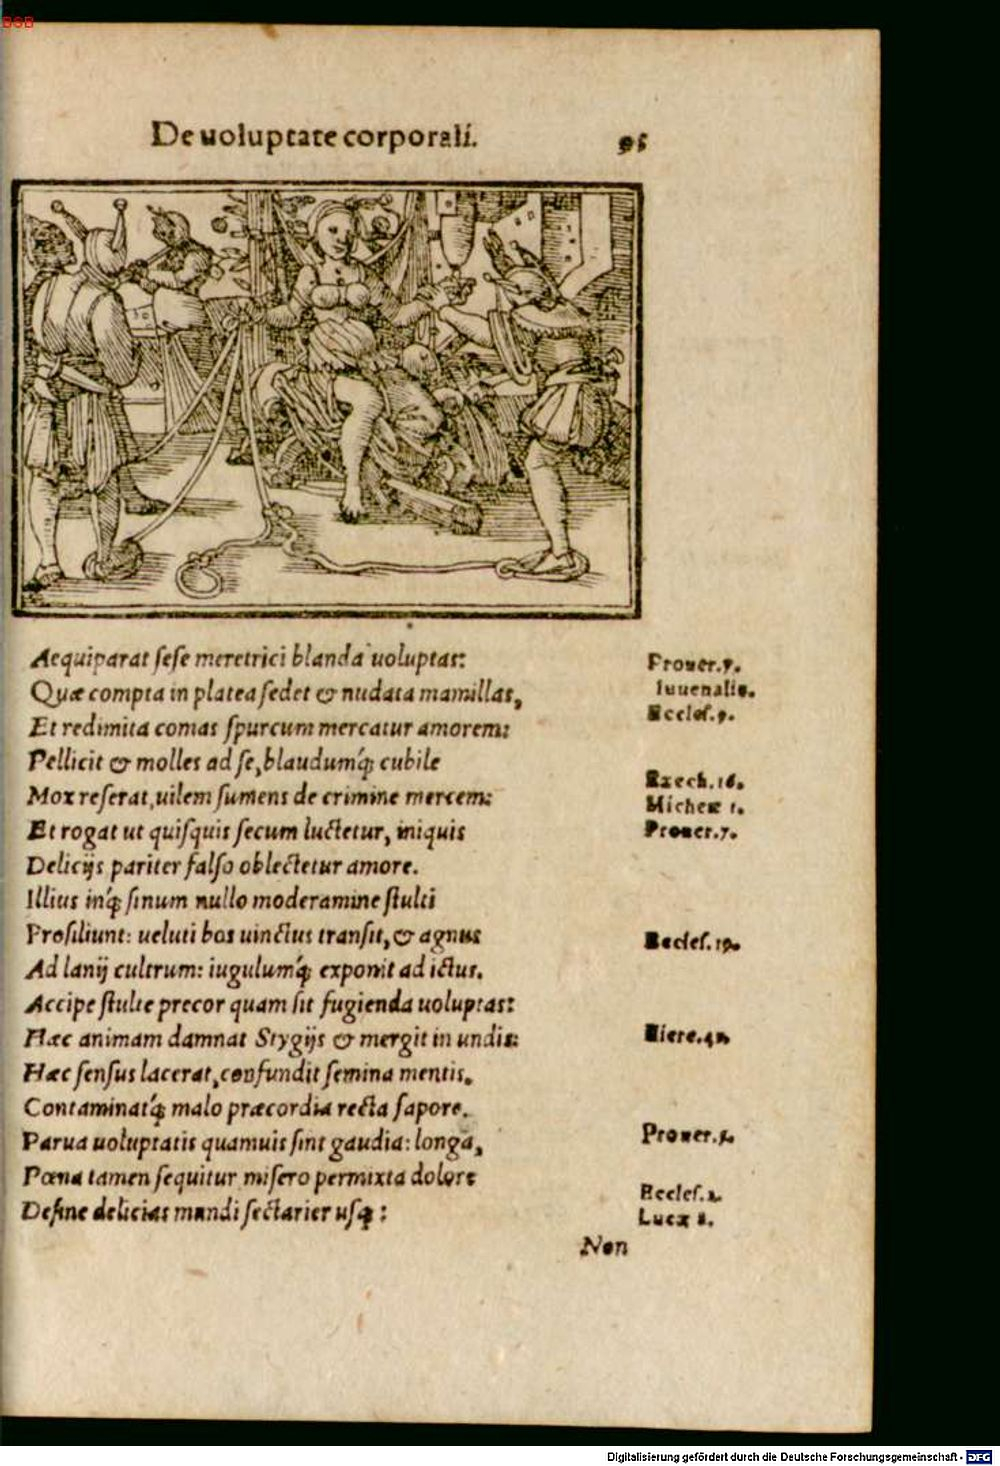 BSB
De uoluptate corporali. 96
Aequiparat sese meretrici blanda uoluptas: Prouer.7.
Quæ compta in platea sedet & nudata mamillas, Iuuenalis.
Et redimita comas spurcum mercatur amorem: Eccles.9.
Pellicit & molles ad se, blaudumq́; cubile
Mox reserat, uilem sumens de crimine mercem: Ezech.16.
Micheæ 1.
Et rogat ut quisquis secum luctetur, iniquis Prouer.7.
Delicijs pariter falso oblectetur amore.
Illius inq́; sinum nullo moderamine stulti
Prosiliunt: ueluti bos uinctus transit, & agnus Eccles.19.
Ad lanij cultrum: iugulumq́; exponit ad ictus.
Accipe stulte precor quam sit fugienda uoluptas:
Hæc animam damnat Stygijs & mergit in undis: Hiere.
Hæc sensus lacerat, confundit semina mentis.
Contaminatq́; malo præcordia recta sapore.
Parua uoluptatis quamuis sint gaudia: longa, Prouer.
Pœna tamen sequitur misero permixta dolore
Eccles.2.
Desine delicias mundi sectarier usq; : Lucæ 8.
Non
Digitalisierung gefördert durch die Deutsche Forschungsgemeinschaft - DFG